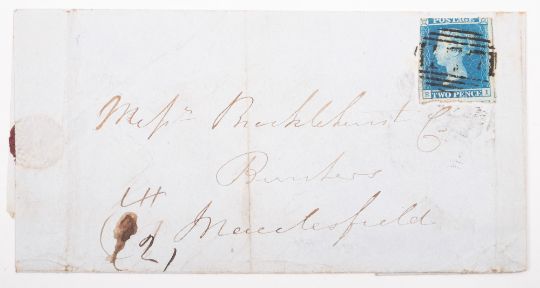 POSTAGE
TWO PENCE
S I
Messrs Brocklehurst & Co
Bankers
Macclesfield
2